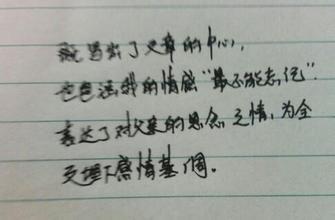 既写出了文章的中心,
也包涵我的情感“最不能忘记”.
表达了对父亲的思念之情,为全
文埋下感情基调。